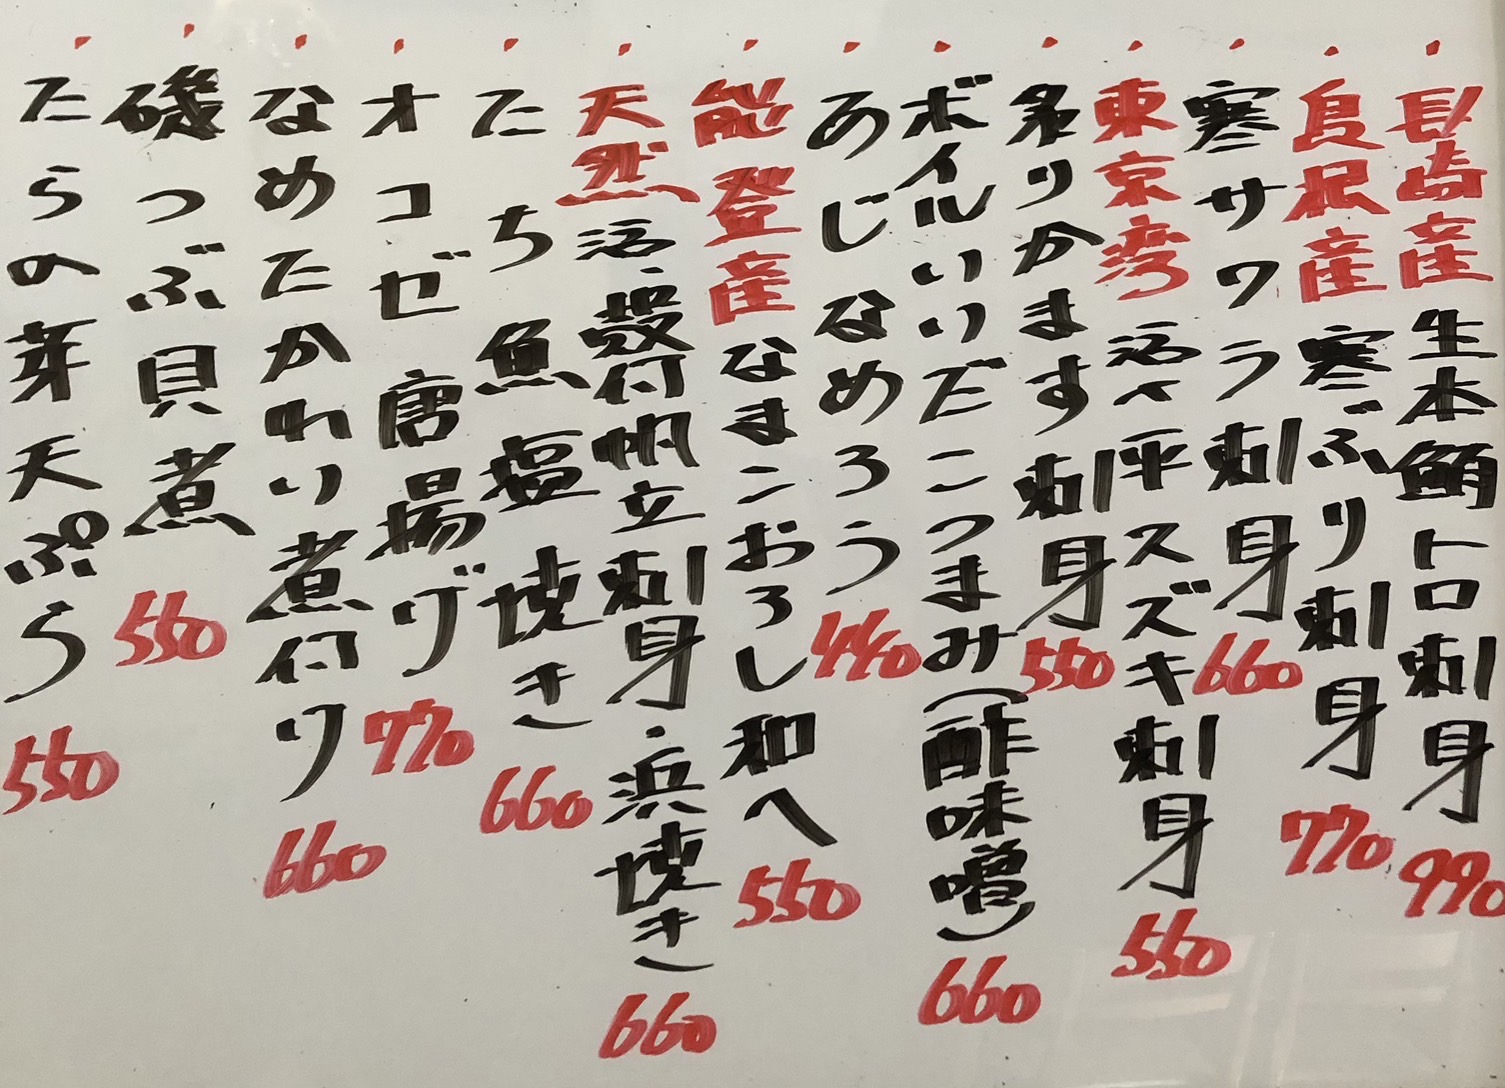 ・長崎産生本鮪トロ刺身 990
・島根産寒ぶり刺身 770
・寒サワラ刺身 660
・東京湾活〆平スズキ刺身 550
・炙りかます刺身 550
・ボイルいいだこつまみ(酢味噌) 660
・あじなめろう 440
・能登産なまこおろし和へ 550
・天然活・殻付帆立刺身・浜焼き 660
・たち魚塩焼き 660
・オコゼ唐揚げ 770
・なめたかれい煮付け 660
・磯つぶ貝煮 550
・たらの芽天ぷら 550